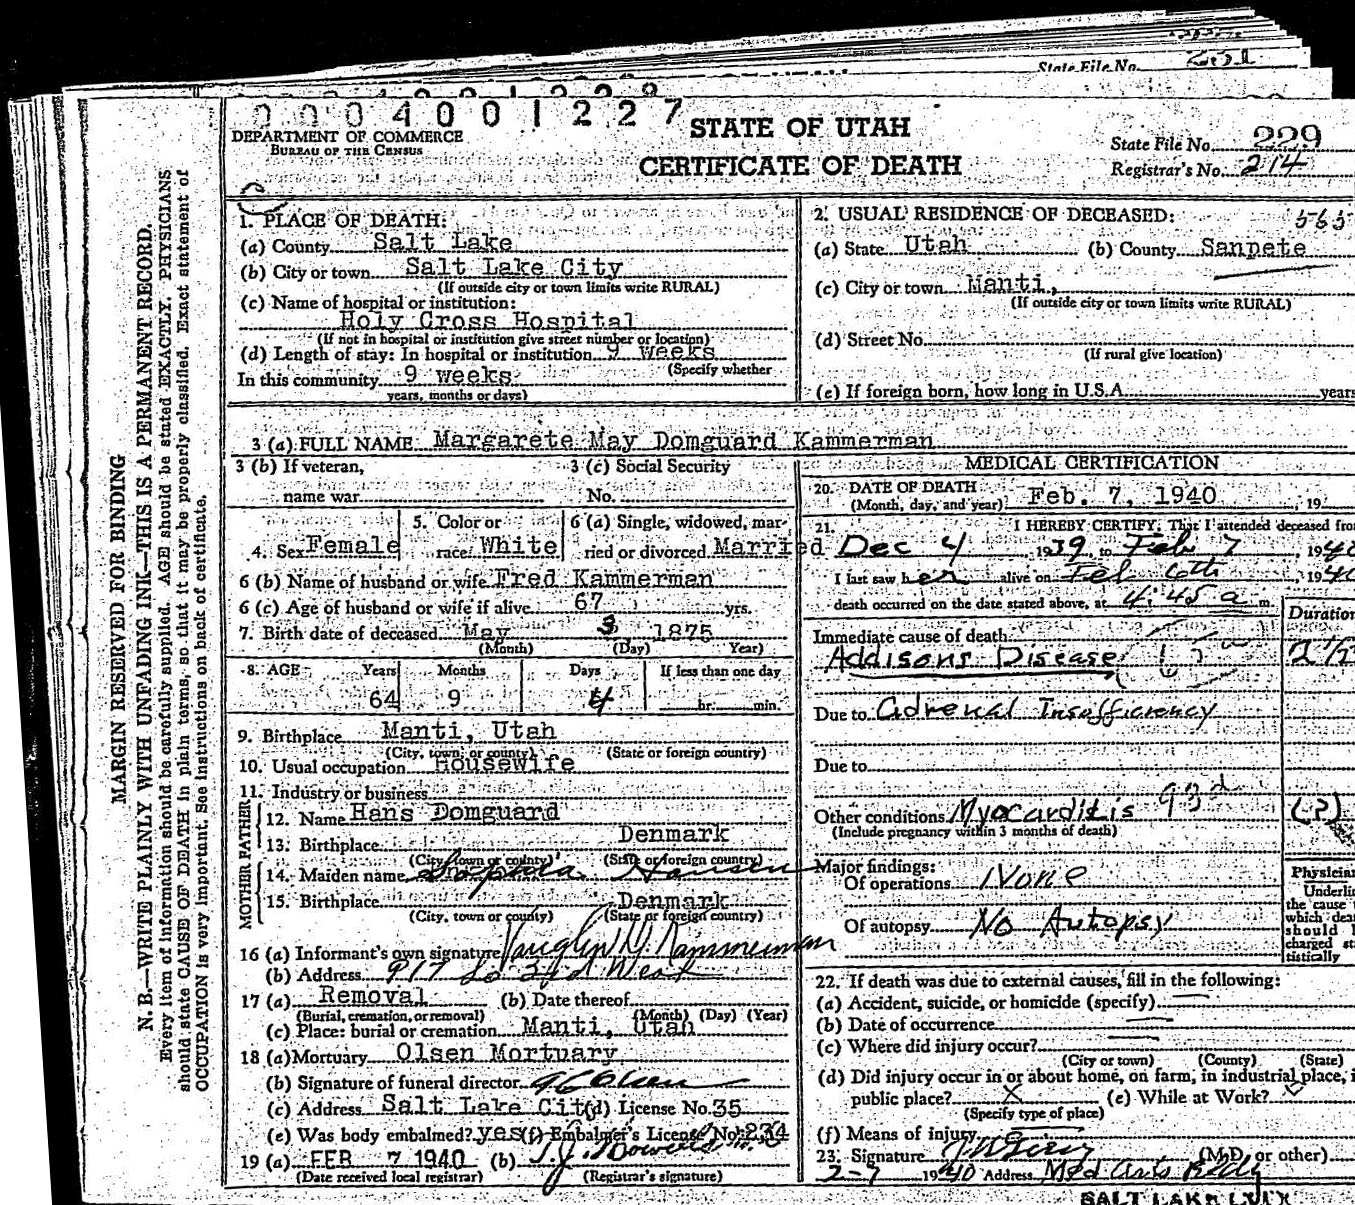 State File No.
0004001227
DEPARTMENT OF COMMERCE
BUREAU OF THE CENSUS
STATE OF UTAH
CERTIFICATE OF DEATH
State File No. 229
Registrar's No. 214
MARGIN RESERVED FOR BINDING
N. B.—WRITE PLAINLY WITH UNFADING INK—THIS IS A PERMANENT RECORD.
Every item of information should be carefully supplied. AGE should be stated EXACTLY. PHYSICIANS
should state CAUSE OF DEATH in plain terms, so that it may be properly classified. Exact statement of
OCCUPATION is very important. See instructions on back of certificate.
1. PLACE OF DEATH:
(a) County Salt Lake
(b) City or town Salt Lake City
(If outside city or town limits write RURAL)
(c) Name of hospital or institution:
Holy Cross Hospital
(If not in hospital or institution give street number or location)
(d) Length of stay: In hospital or institution 9 weeks
(Specify whether
In this community 9 weeks
years, months or days)
2. USUAL RESIDENCE OF DECEASED: 565
(a) State Utah (b) County Sanpete
(c) City or town Manti,
(If outside city or town limits write RURAL)
(d) Street No.
(If rural give location)
(e) If foreign born, how long in U.S.A. years
3 (a) FULL NAME Margarete May Domguard Kammerman
3 (b) If veteran,
name war
3 (c) Social Security
No.
4. Sex Female
5. Color or
race White
6 (a) Single, widowed, mar-
ried or divorced Married
6 (b) Name of husband or wife Fred Kammerman
6 (c) Age of husband or wife if alive 67 yrs.
7. Birth date of deceased May 3 1875
(Month) (Day) Year)
8. AGE Years Months Days If less than one day
64 9 4 hr. min.
9. Birthplace Manti, Utah
(City, town, or county) (State or foreign country)
10. Usual occupation Housewife
11. Industry or business
FATHER
12. Name Hans Domguard
13. Birthplace Denmark
(City, town or county) (State or foreign country)
MOTHER
14. Maiden name Sophia Hansen
15. Birthplace Denmark
(City, town or county) (State or foreign country)
16 (a) Informant's own signature Vaughn D. Kammerman
(b) Address 917 So 2nd West
17 (a) Removal (b) Date thereof
(Burial, cremation, or removal) (Month) (Day) (Year)
(c) Place: burial or cremation Manti, Utah
18 (a) Mortuary Olsen Mortuary
(b) Signature of funeral director Olsen
(c) Address Salt Lake City (d) License No. 35
(e) Was body embalmed? yes (f) Embalmer's License No. 234
19 (a) FEB 7 1940 (b) T.J. Howells
(Date received local registrar) (Registrar's signature)
MEDICAL CERTIFICATION
20. DATE OF DEATH
(Month, day, and year) Feb. 7, 1940, 19
21. I HEREBY CERTIFY, That I attended deceased fro
Dec 4 1939 to Feb 7 1940
I last saw her alive on Feb 6th, 1940
death occurred on the date stated above, at 4:45 a m.
Duration
Immediate cause of death
Addisons Disease
Due to Adrenal Insufficiency
Due to
Other conditions Myocarditis 93d (?)
(Include pregnancy within 3 months of death)
Major findings:
Of operations None
Of autopsy No Autopsy
Physicia
Underli
the cause
which dea
should
charged st
tistically
22. If death was due to external causes, fill in the following:
(a) Accident, suicide, or homicide (specify)
(b) Date of occurrence
(c) Where did injury occur?
(City or town) (County) (State)
(d) Did injury occur in or about home, on farm, in industrial place, i
public place? (e) While at Work?
(Specify type of place)
(f) Means of injury
23. Signature (M.D. or other)
2-7 1940 Address Med Arts Bldg
SALT LAKE CITY